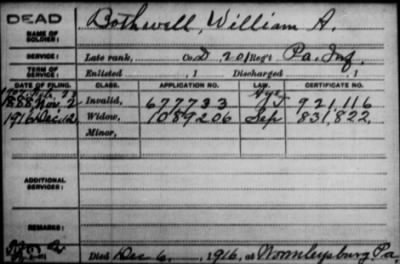 DEAD
NAME OF SOLDIER: Bothwell, William A.
SERVICE: Late rank, Co. D, 201 Reg't Pa. Inf.
TERM OF SERVICE: Enlisted , 1 Discharged , 1
DATE OF FILING. CLASS. APPLICATION NO. LAW. CERTIFICATE NO.
1888 Nov. 2 Invalid, 677733 921,116
1916 Dec. 12 Widow, 1089206 Sep 831,822
Minor,
ADDITIONAL SERVICES:
REMARKS:
Died Dec 6, 1916, at Wormleysburg Pa